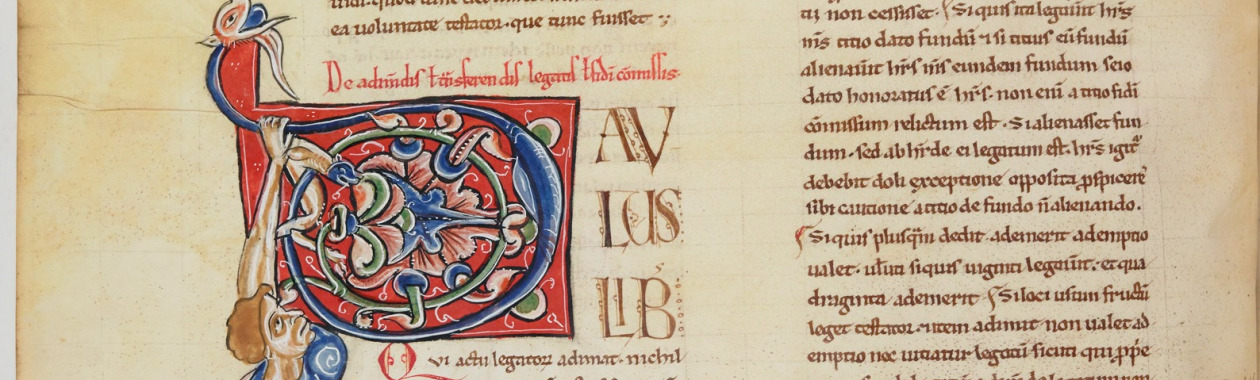 ea voluntate testator que tunc fuisset
De adimdis ł tñsferendis legatis ł fidi cõmissis
P
AV
LUS
LIB
Qui actũ legatorz adimat nichil
tij non cessisset. Si quis ita legauit hr̃s
m̃s titio dato fundũ ⁊ si titius eũ fundũ
alienauit hr̃s m̃s eundem fundum seio
dato honoratus ẽ hr̃s. non eni a titio fidi
cõmissum relictum est. Si alienasset fun
dum. sed ab hr̃de ei legatum est. hr̃s igit̃
debebit doli exceptione opposita ꝓspicere
sibi cautione a titio de fundo ñ alienando.
Si quis plusq̃m dedit ademerit ademptio
ualet. ułuti si quis uiginti legauit. et qua
draginta ademerit Si loci usum fructũ
leget testator. item adimit non ualet ad
emptio nec uitiatur legatũ sicuti qui ꝓp̃e